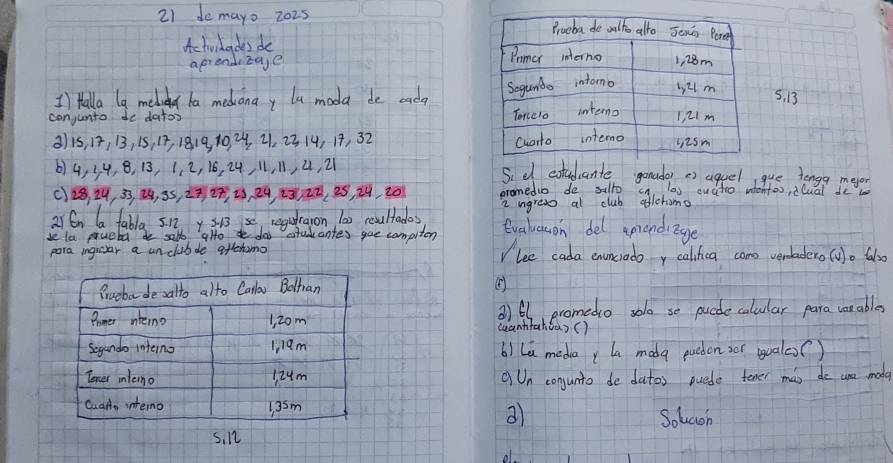 21 de mayo 2025
Actividades de
aprendizaje
1) Halla la media la mediana y la moda de cada
conjunto de datos
a) 15, 17, 13, 15, 17, 18, 19, 10, 24, 21, 22, 14, 17, 32
b) 4, 1, 4, 8, 13, 1, 2, 16, 24, 11, 11, 21, 21
c) 28, 24, 33, 24, 35, 27, 27, 23, 24, 23, 22, 25, 24, 20
2) En la tabla 5.12 y 5.13 se registraron los resultados
de la prueba de salto alto de dos estudiantes que compiten
para ingresar a un club de atletismo
Prueba de salto alto Carlos Beltran
Primer intento 1,20m
Segundo intento 1,19m
Tercer intento 1,24m
Cuarto intento 1,35m
5.12
Prueba de salto alto Jesús Perez
Primer intento 1,28m
Segundo intento 1,21m
Tercero intento 1,21m
Cuarto intento 1,25m
5.13
Si el estudiante ganador es aquel, que tenga mejor
promedio de salto en los cuatro intentos, ¿Cual de
ingreso al club atletismo
Evaluación del aprendizaje
√ Lee cada enunciado y califica como verdadero (v) o falso
(f)
a) El promedio solo se puede calcular para variables
cuantitativas ( )
b) La media y la moda pueden ser iguales ( )
c) Un conjunto de datos puede tener más de una moda
a) Solución